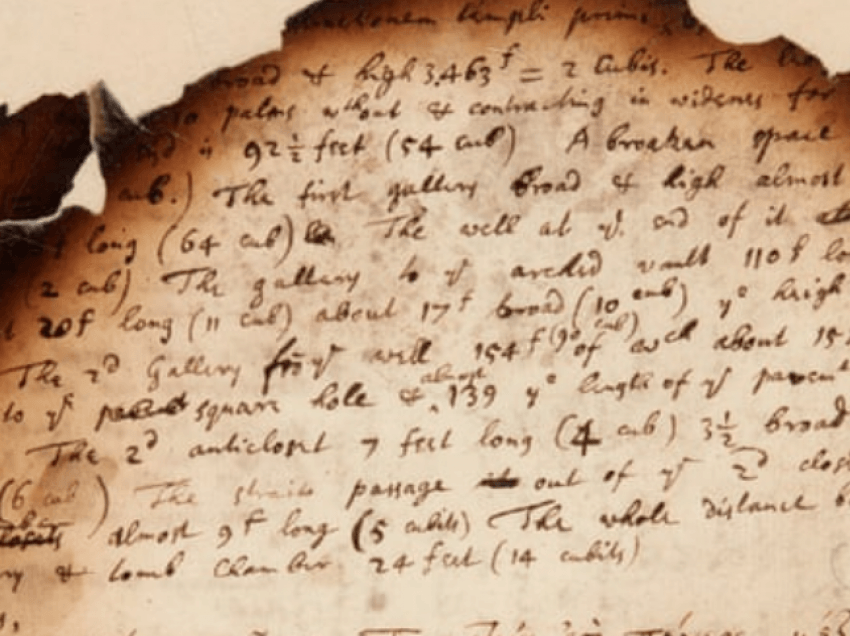 templi
broad & high 3.463 f = 2 Cubits. The
palms without & contracting in wideness for
is 92 ½ feet (54 cub) A broaken space
cub.) The first gallery broad & high almost
long (64 cub) The well at yᵉ end of it
(2 cub) The gallery to yᵉ arched vault 110 f
20f long (11 cub) about 17f broad (10 cub) yᵉ heigh
The 2d Gallery frō yᵉ well 154f (90 cub) of well about 15
to yᵉ square hole & almost 139 yᵉ length of yᵉ
The 2d anticloset 7 feet long (4 cub) 3½ broad
(6 cub) The straite passage out of yᵉ 2d
almost 9f long (5 cubits) The whole distance
& tomb Chamber 24 feet (14 cubits)